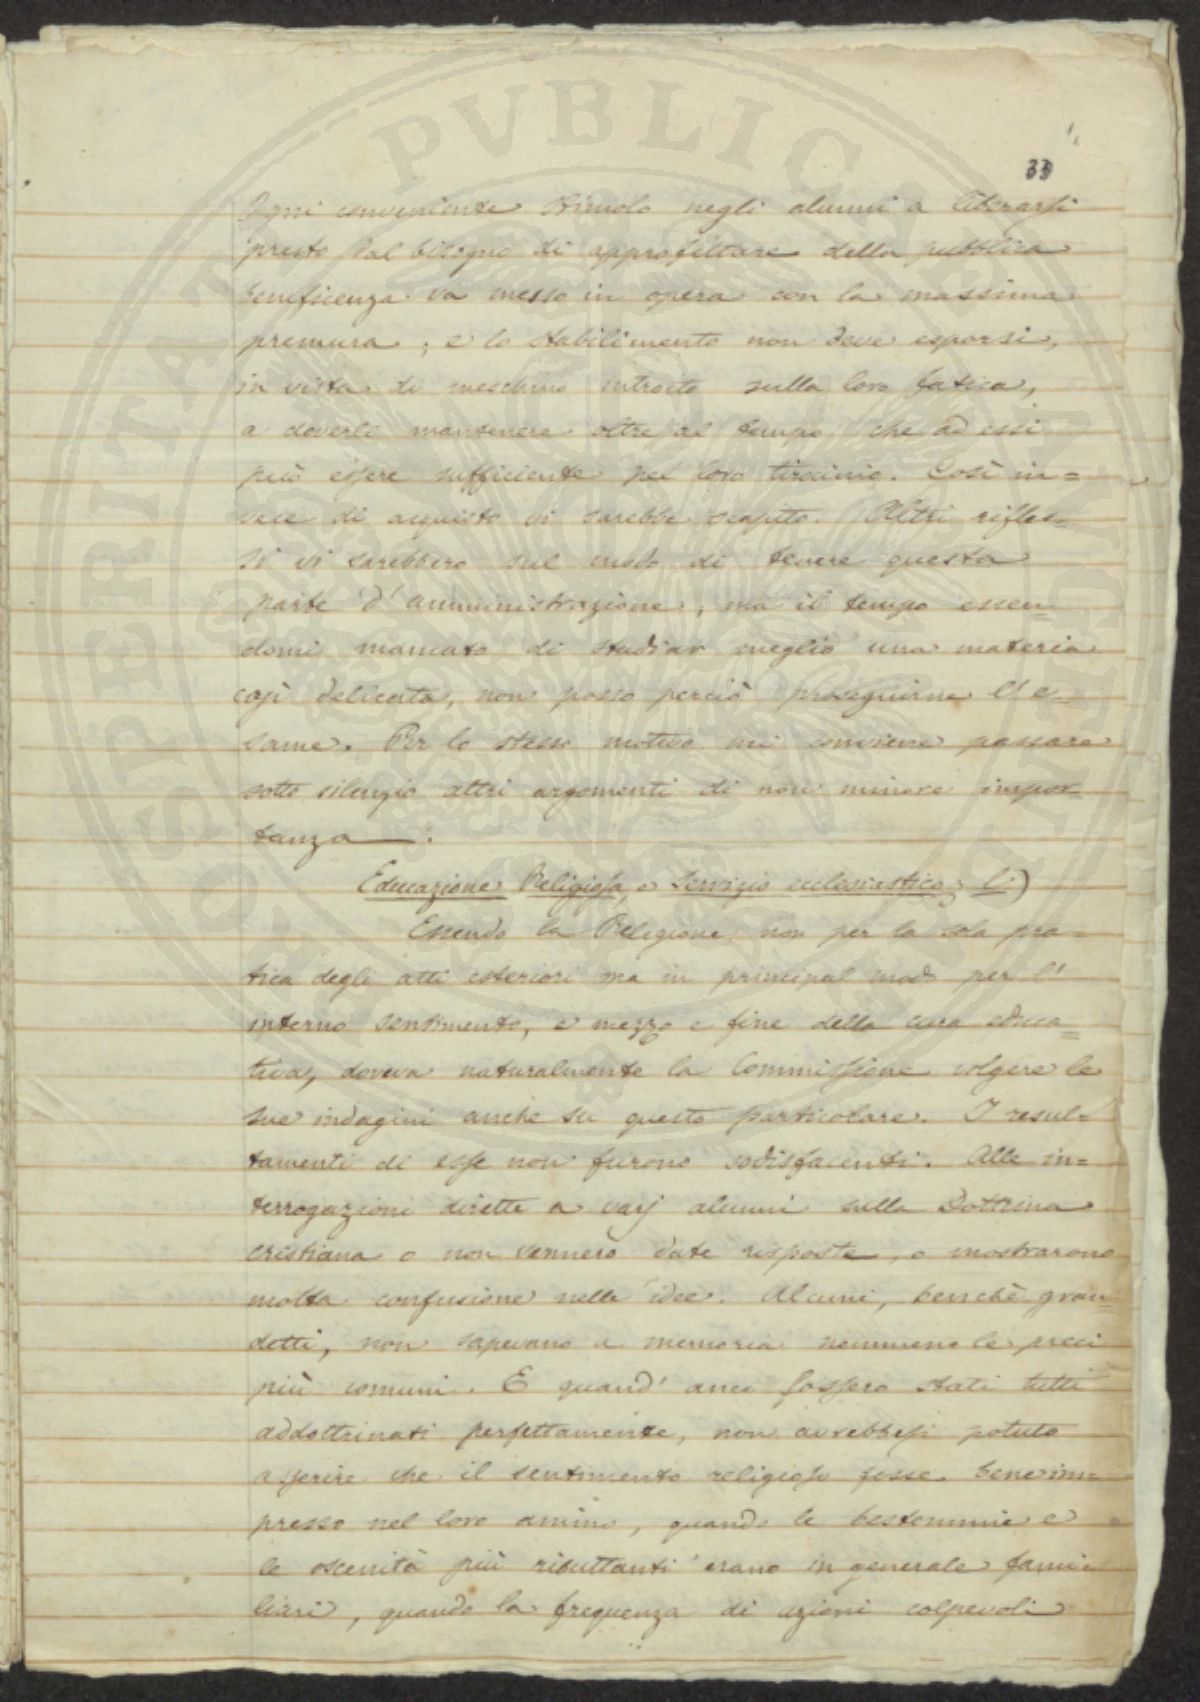 33
Ogni conveniente stimolo negli alunni a liberarsi
presto dal bisogno di approfittare della pubblica
beneficenza va messo in opera con la massima
premura; e lo stabilimento non deve esporsi,
in vista di meschino introito sulla loro fatica,
a doverli mantenere oltre al tempo che ad essi
può essere sufficiente pel loro tirocinio. Così in=
vece di acquisto vi sarebbe scapito. Altri rifles=
si vi sarebbero sul modo di tenere questa
parte d'amministrazione, ma il tempo essen=
domi mancato di studiar meglio una materia
così delicata, non posso perciò proseguirne l'e=
same. Per lo stesso motivo mi conviene passare
sotto silenzio altri argomenti di non minore impor=
tanza.
Educazione Religiosa, e Servizio ecclesiastico
Essendo la Religione, non per la sola pra=
tica degli atti esteriori ma in principal modo per l'
interno sentimento, e mezzo e fine della cura educa=
tiva, doveva naturalmente la Commissione volgere le
sue indagini anche su questo particolare. I resul=
tamenti di esse non furono sodisfacenti. Alle in=
terrogazioni dirette a varj alunni sulla Dottrina
cristiana o non vennero date risposte, o mostrarono
molta confusione nelle idee. Alcuni, benchè gran=
detti, non sapevano a memoria nemmeno le preci
più comuni. E quand'anco fossero stati tutti
addottrinati perfettamente, non avrebbesi potuto
asserire che il sentimento religioso fosse bene im=
presso nel loro animo, quando le bestemmie e
le oscenità più ributtanti erano in generale fami=
liari, quando la frequenza di azioni colpevoli
PROSPERITATE PVBLICA